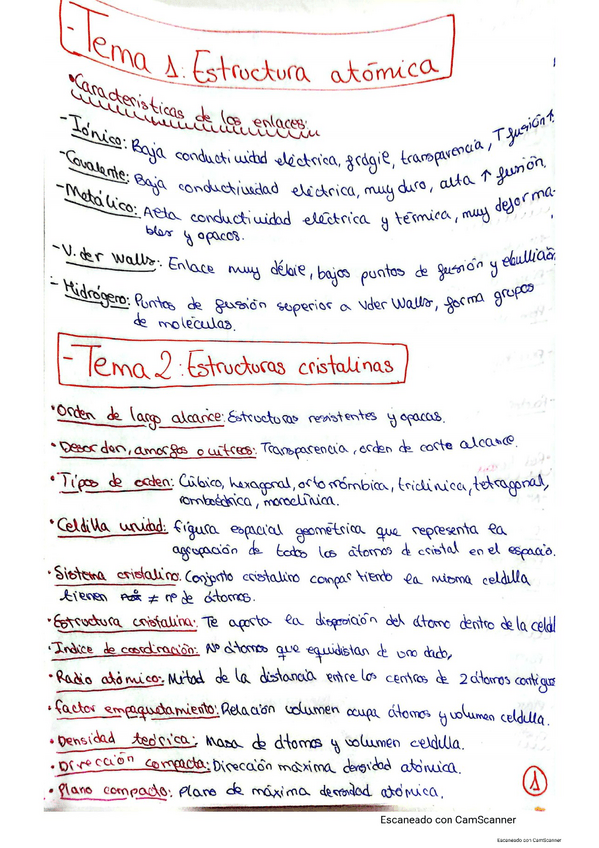 -Tema 1: Estructura atómica
•Características de los enlaces:
-Iónico: Baja conductividad eléctrica, frágil, transparencia, T fusión ↑.
-Covalente: Baja conductividad eléctrica, muy duro, alta ↑ fusión.
-Metálico: Alta conductividad eléctrica y térmica, muy deforma-
bles y opacos.
-V. der Walls: Enlace muy débil, bajos puntos de fusión y ebullición
- Hidrógeno: Puntos de fusión superior a Vder Walls, forma grupos
de moléculas.
-Tema 2: Estructuras cristalinas
•Orden de largo alcance: Estructuras resistentes y opacas.
•Desorden, amorfos o vítreos: Transparencia, orden de corto alcance.
•Tipos de orden: Cúbico, hexagonal, ortorrómbica, triclínica, tetragonal,
romboédrica, monoclínica.
•Celdilla unidad: figura espacial geométrica que representa la
agrupación de todos los átomos de cristal en el espacio.
•Sistema cristalino: Conjunto cristalino compartiendo la misma celdilla
tienen ≠ nº de átomos.
•Estructura cristalina: Te aporta la disposición del átomo dentro de la celdi
•Índice de coordinación: Nº átomos que equidistan de uno dado,
•Radio atómico: Mitad de la distancia entre los centros de 2 átomos contiguos
•factor empaquetamiento: Relación volumen ocupa átomos y volumen celdilla.
•Densidad teórica: Masa de átomos y volumen celdilla.
•Dirección compacta: Dirección máxima densidad atómica.
•Plano compacto: Plano de máxima densidad atómica.
1
Escaneado con CamScanner
Escaneado con CamScanner